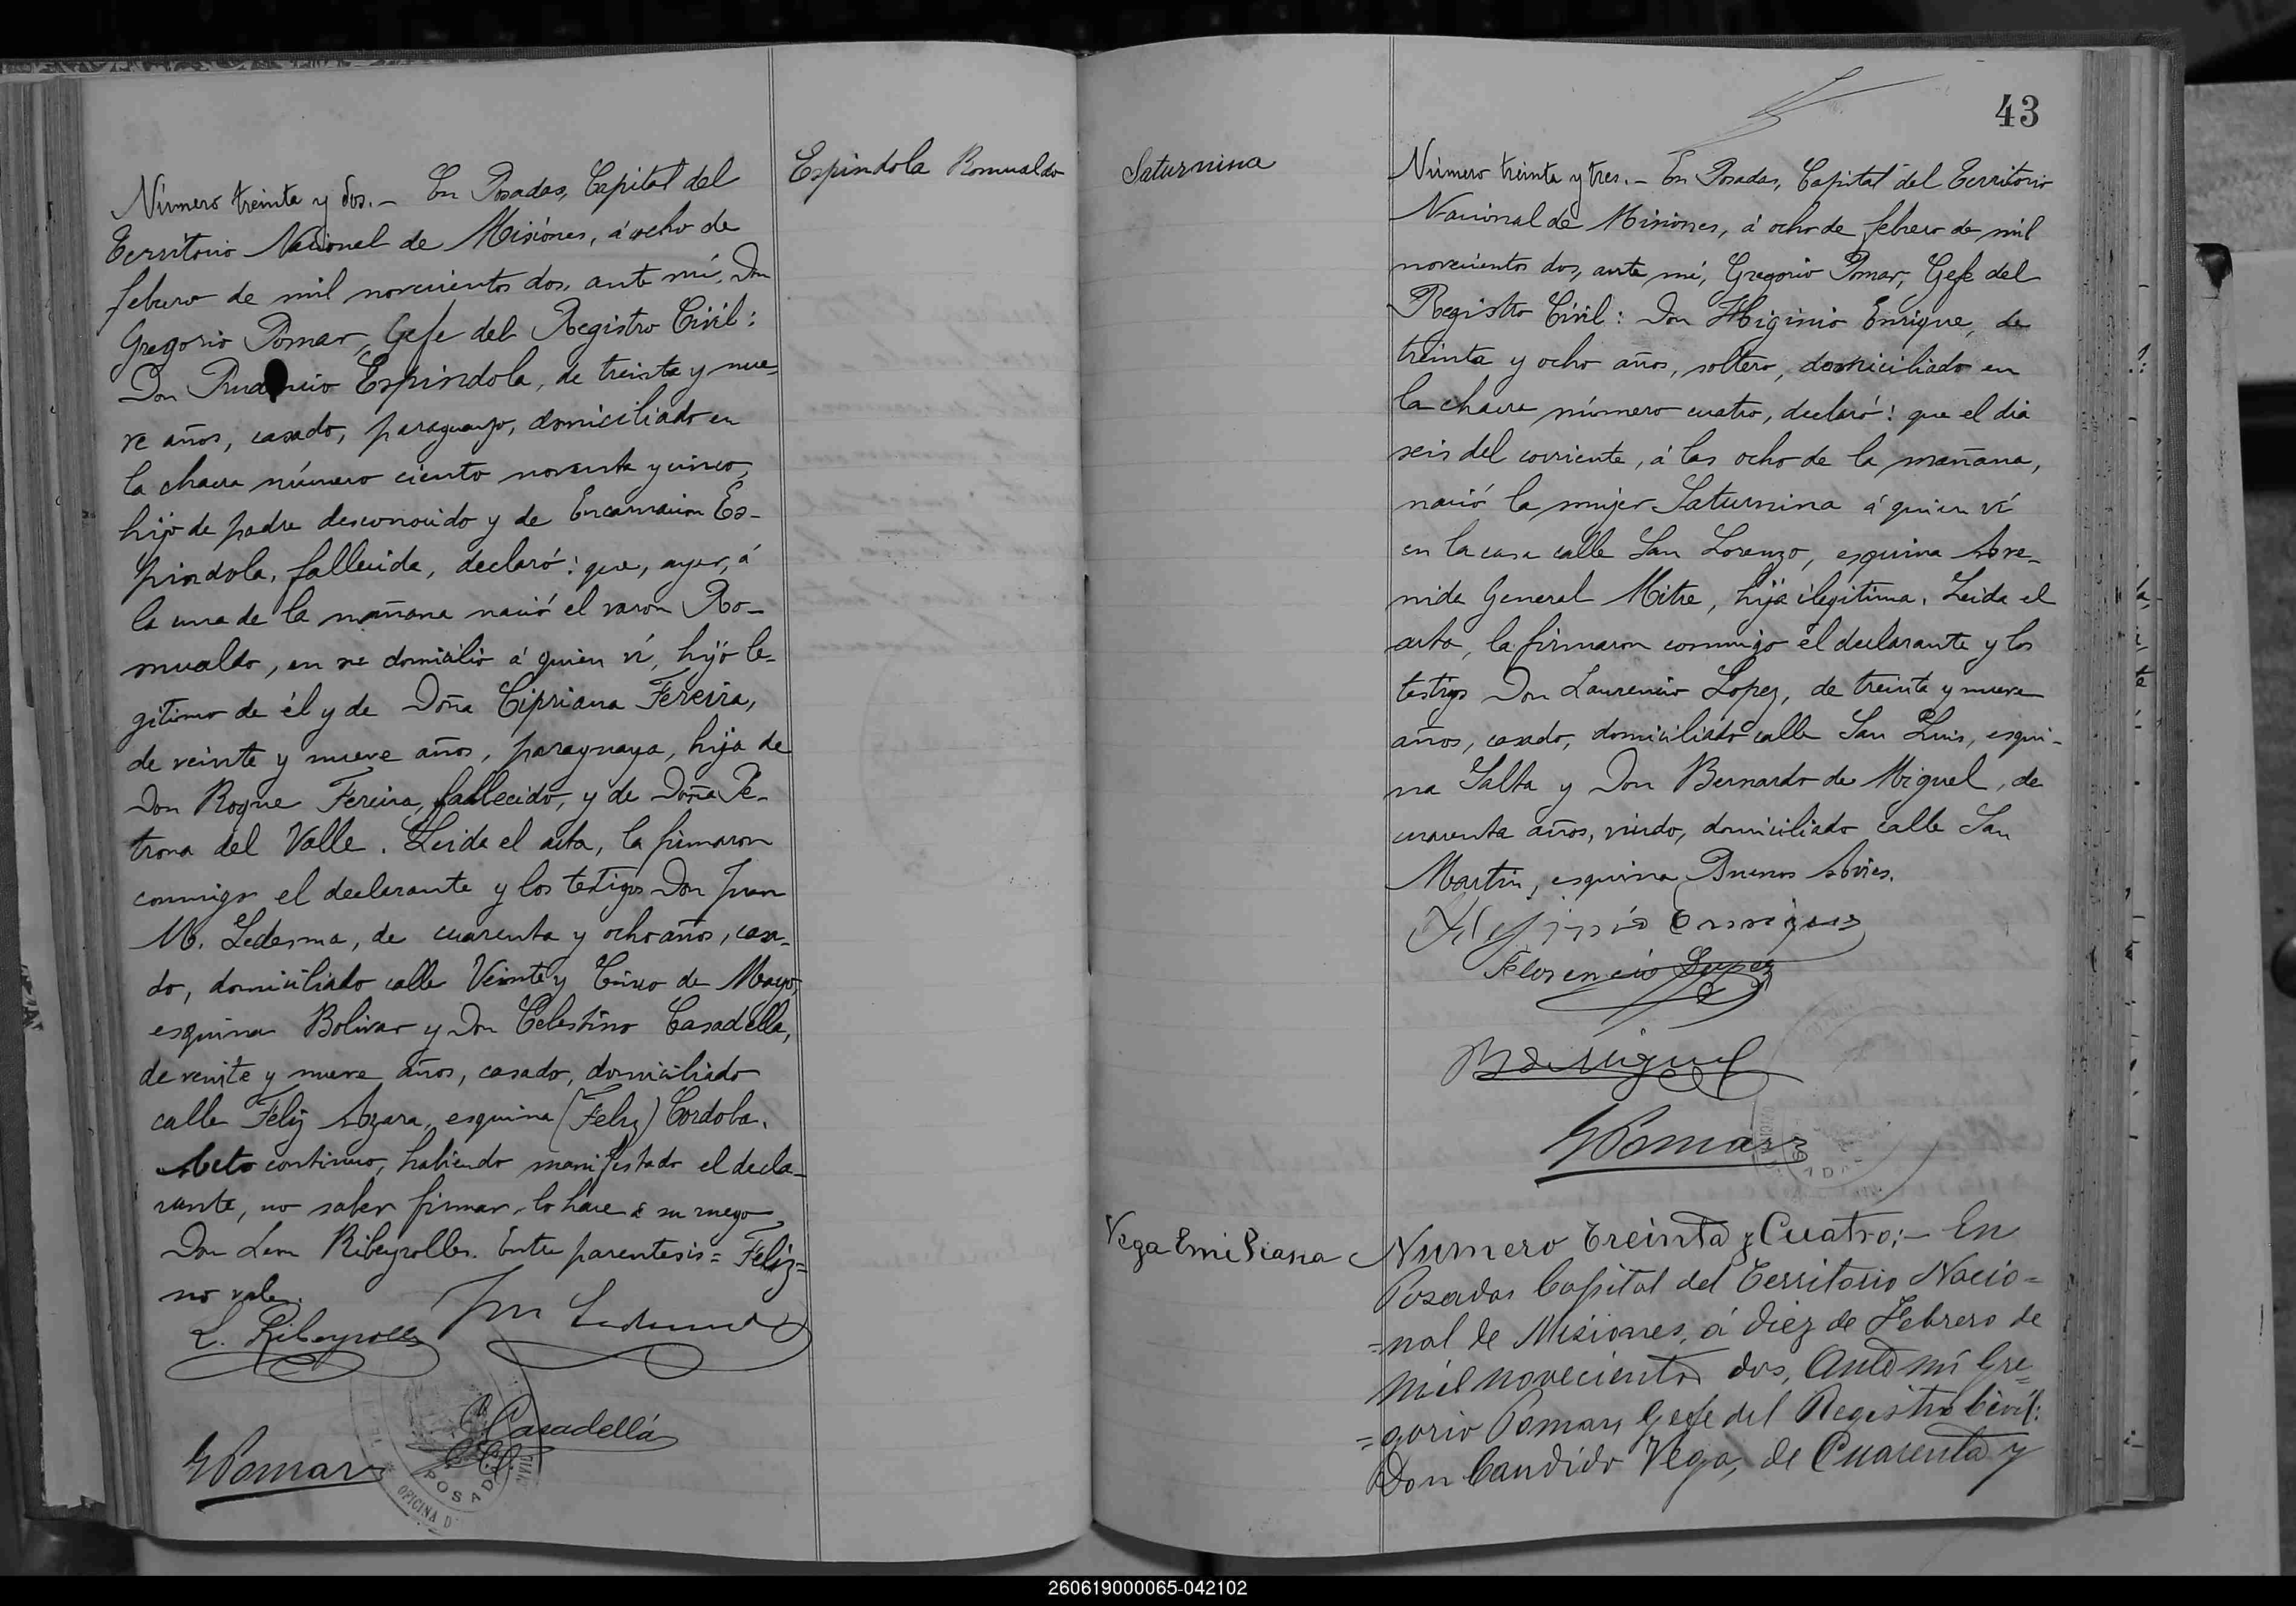 Espindola Romualdo
Número treinta y dos.- En Posadas, Capital del
Territorio Nacional de Misiónes, á ocho de
febrero de mil novecientos dos, ante mí, Don
Gregorio Pomar, Gefe del Registro Civil:
Don Prudencio Espindola, de treinta y nue-
ve años, casado, paraguayo, domiciliado en
la chacra número ciento noventa y cinco,
hijo de padre desconocido y de Encarnacion Es-
pindola, fallecida, declaró: que, ayer, á
la una de la mañana nació el varon Ro-
mualdo, en se domicilio á quien ví, hijo le-
gitimo de él y de Doña Cipriana Fereira,
de veinte y nueve años, paraguaya, hija de
Don Roque Fereira, fallecido, y de Doña Pe-
trona del Valle. Leida el acta, la firmaron
conmigo el declarante y los testigos Don Juan
M. Ledesma, de cuarenta y ocho años, casa-
do, domiciliado calle Veinte y Cinco de Mayo,
esquina Bolivar y Don Celestino Casadella,
de veinte y nueve años, casado, domiciliado
calle Feliz Azara, esquina (Feliz) Cordoba.
Acto continuo, habiendo manifestado el decla-
rante, no saber firmar, lo hace á su ruego
Don Leon Ribeyrolles. Entre parentesis = Feliz =
no vale.
L. Ribeyrolles
Jn Ledesma
C. Casadellá
G Pomar
POSAD
OFICINA D
43
Saturnina
Número treinta y tres.- En Posadas, Capital del Territorio
Nacional de Misiones, á ocho de febrero de mil
novecientos dos, ante mí, Gregorio Pomar, Gefe del
Registro Civil: Don Higinio Enrique, de
treinta y ocho años, soltero, domiciliado en
la chacra número cuatro, declaró: que el dia
seis del corriente, á las ocho de la mañana,
nació la mujer Saturnina á quien ví
en la casa calle San Lorenzo, esquina Ave-
nida General Mitre, hija ilegitima. Leida el
acta, la firmaron conmigo el declarante y los
testigos Don Laurencio Lopez, de treinta y nueve
años, casado, domiciliado calle San Luis, esqui-
na Salta y Don Bernardo de Miguel, de
cuarenta años, viudo, domiciliado calle San
Martin, esquina Buenos Aires.
Higinio Enrique
Florencio Lopez
B de Miguel
G Pomar
Vega Emiliana
Numero Treinta y Cuatro;- En
Posadas Capital del Territorio Nacio=
=nal de Misiones, á diez de Febrero de
mil novecientos dos, Ante mí Gre
=gorio Pomar, Gefe del Registro Civil:
Don Candido Vega, de Cuarenta y
260619000065-042102